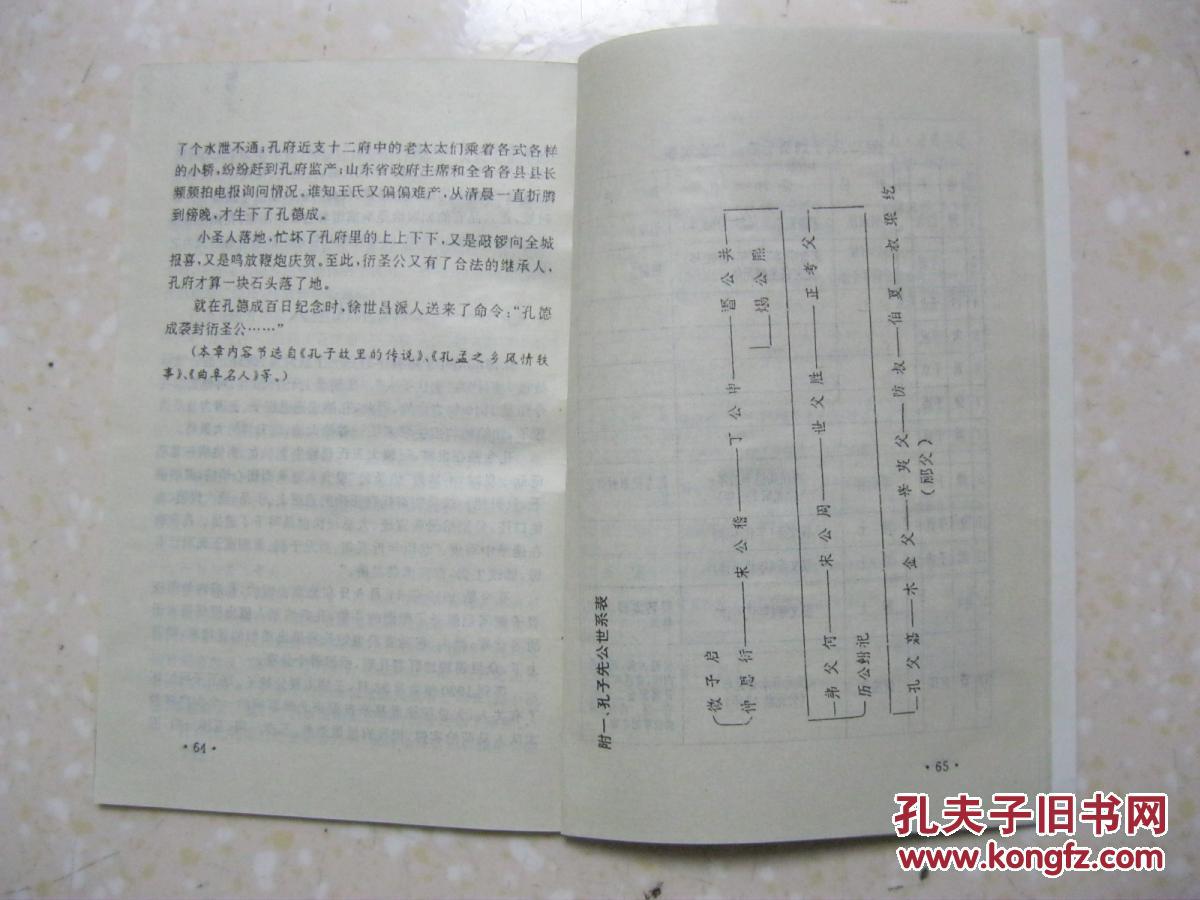 了个水泄不通；孔府近支十二府中的老太太们乘着各式各样
的小轿，纷纷赶到孔府监产；山东省政府主席和全省各县县长
频频拍电报询问情况。谁知王氏又偏偏难产，从清晨一直折腾
到傍晚，才生下了孔德成。
小圣人落地，忙坏了孔府里的上上下下，又是敲锣向全城
报喜，又是鸣放鞭炮庆贺。至此，衍圣公又有了合法的继承人，
孔府才算一块石头落了地。
就在孔德成百日纪念时，徐世昌派人送来了命令：“孔德
成袭封衍圣公……”
（本章内容节选自《孔子故里的传说》、《孔孟之乡风情轶
事》、《曲阜名人》等。）
·64·
附一、孔子先公世系表
微子启
仲思衍——宋公稽——丁公申——湣公共
炀公熙
弗父何——宋父周——世父胜——正考父
历公鲋祀
孔父嘉——木金父——睾夷父——防叔——伯夏——叔梁纥
（祁父）
·65·
孔夫子旧书网
www.kongfz.com